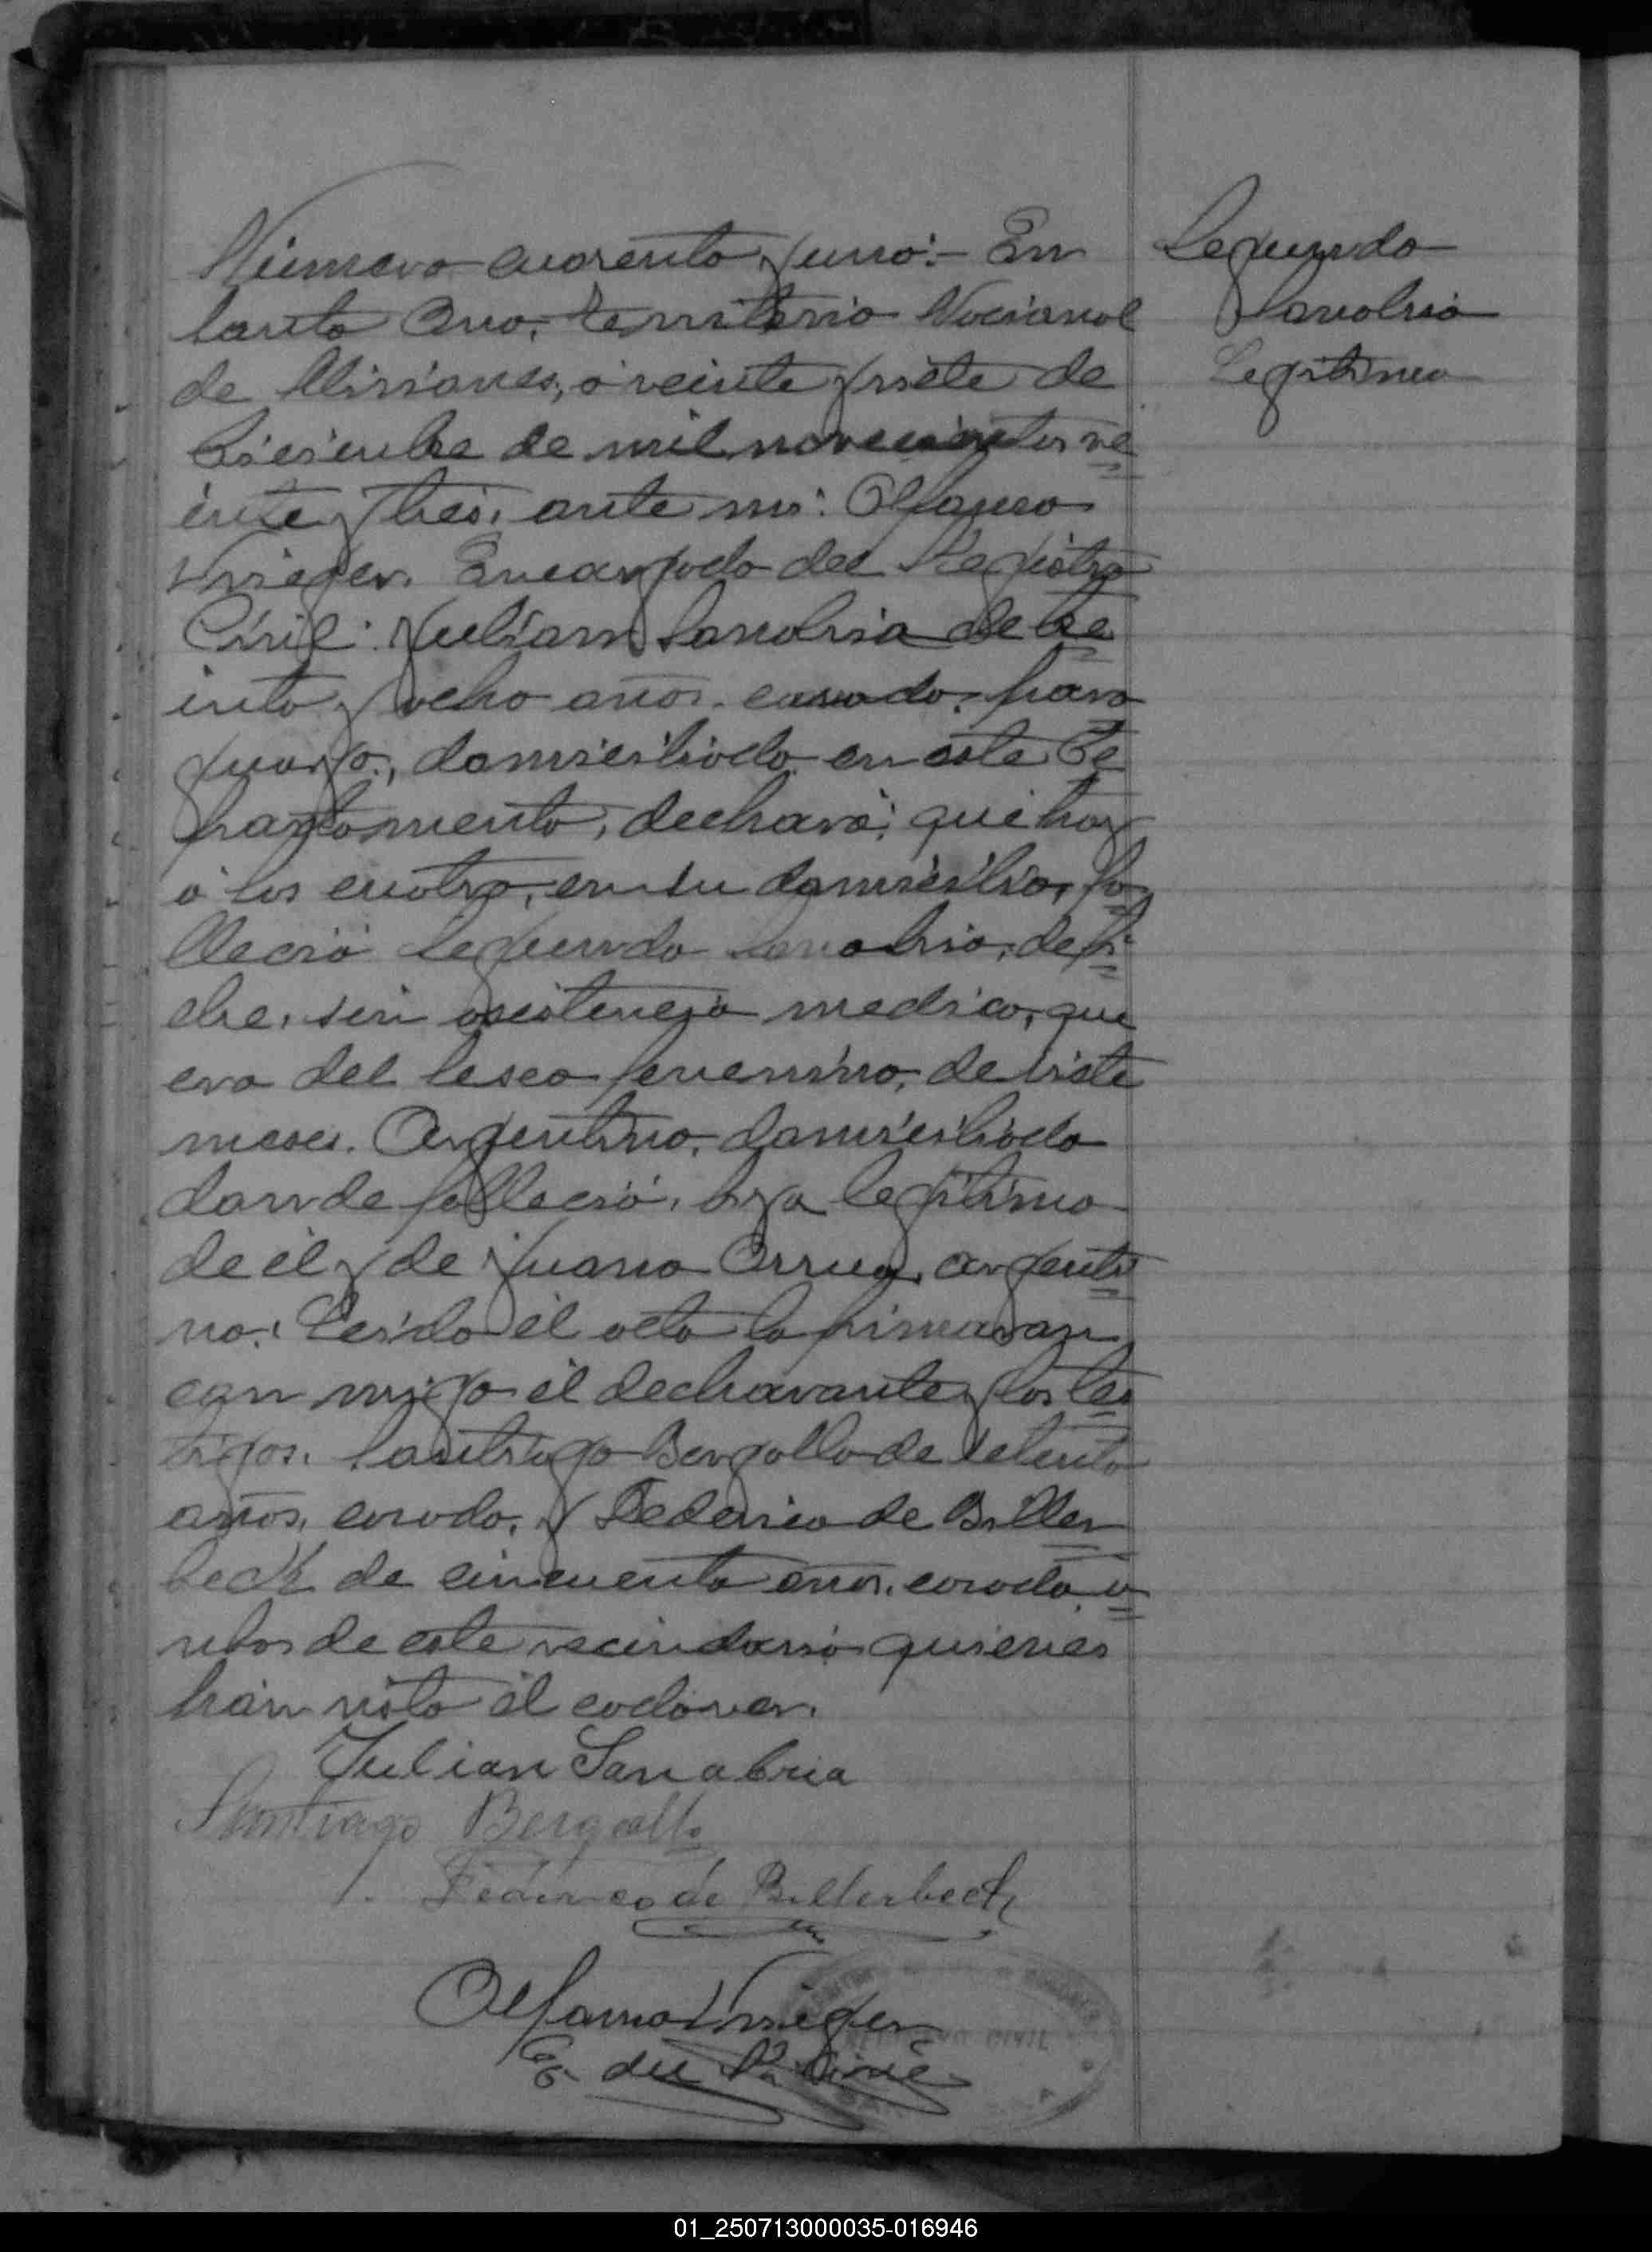 Número cuarenta y uno:- En
Santa Ana, territorio Nacional
de Misiones, á veinte y siete de
Diciembre de mil novecientos ve
inte y tres, ante mi: Alfonso
Encargado del Registro
Civil: Julian Sanabria de tre
inta y ocho años, casado, para
guayo, domiciliado en este De
partamento, declaró; que hoy
á las cuatro, en su domicilio, fa
lleció Segunda Sanabria, de fi
ebre, sin asistencia medica, que
era del secso femenino, de siete
meses, Argentina, domiciliada
donde falleció, hija legitima
de él y de Juana Orrua, argenti
na. Leida él acta la firmaron
con migo él declarante y los tes
tigos, Santiago Bergallo de setenta
años, casado, y Federico de Biller
beck de cincuenta años, casado, a
mbos de este vecindario quienes
hán visto él cadáver.
Julian Sanabria
Santiago Bergallo
Federico de Billerbeck
Alfonso
E. del R. Civil
Segunda
Sanabria
Legitima
CIVIL
01_250713000035-016946